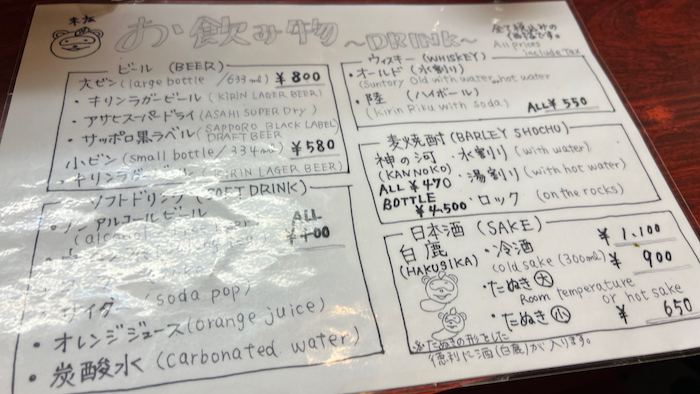 お飲み物 ~DRINK~
全て税込みの
価格です。
All prices
include Tax
ビール (BEER)
大ビン (large bottle /633ml) ¥800
・キリンラガービール (KIRIN LAGER BEER)
・アサヒスーパードライ (ASAHI SUPER Dry)
・サッポロ黒ラベル (SAPPORO BLACK LABEL DRAFT BEER
小ビン (small bottle / 334ml) ¥580
KIRIN LAGER BEER)
ソフトドリンク (SOFT DRINK)
・ノンアルコールビール
ALL
¥400
サイダー (soda pop)
・オレンジジュース (orange juice)
・炭酸水 (carbonated water)
ウィスキー (WHISKEY)
・オールド (水割り)
(Suntory Old with water or hot water
・陸 (ハイボール)
(Kirin Riku with soda) ALL ¥550
麦焼酎 (BARLEY SHOCHU)
神の河 ・水割り (with water)
(KANNOKO)
ALL ¥470 ・湯割り (with hot water)
BOTTLE
¥4,500 ・ロック (on the rocks)
日本酒 (SAKE)
白鹿 ・冷酒 ¥1,100
(HAKUSIKA) cold sake (300ml)
・たぬき 大 ¥900
Room temperature
or hot sake
・たぬき 小 ¥650
※たぬきの形とした
徳利に酒(白鹿)が入ります。